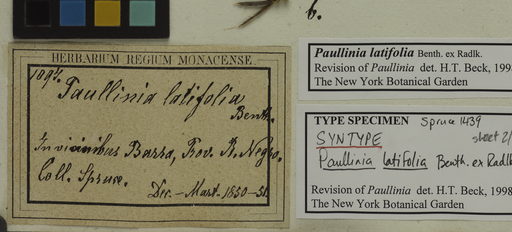 b.
HERBARIUM REGIUM MONACENSE.
Paullinia latifolia
Benth.
In vicinibus Barra, Prov. R. Negro.
Coll. Spruce.
Dec. - Mart. 1850-51.
Paullinia latifolia Benth. ex Radlk.
Revision of Paullinia det. H.T. Beck, 199
The New York Botanical Garden
TYPE SPECIMEN Spruce 1439
sheet 2/
SYNTYPE
Paullinia latifolia Benth. ex Radlk
Revision of Paullinia det. H.T. Beck, 1998
The New York Botanical Garden